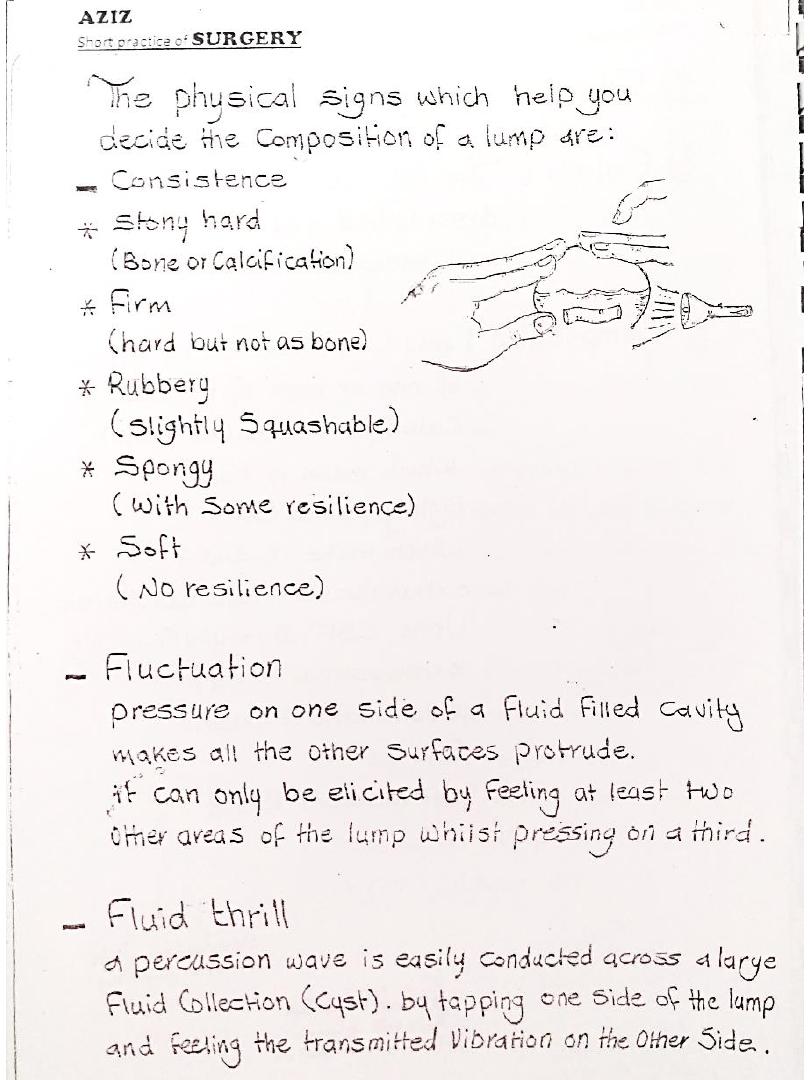 AZIZ
Short practice of SURGERY
The physical signs which help you
decide the Composition of a lump are:
- Consistence
* Stony hard
(Bone or Calcification)
* Firm
(hard but not as bone)
* Rubbery
(Slightly Squashable)
* Spongy
(With Some resilience)
* Soft
(No resilience)
- Fluctuation
pressure on one side of a fluid filled cavity
makes all the other surfaces protrude.
it can only be elicited by feeling at least two
other areas of the lump whilst pressing on a third.
- Fluid thrill
a percussion wave is easily conducted across a large
fluid Collection (Cyst). by tapping one side of the lump
and feeling the transmitted Vibration on the Other Side.